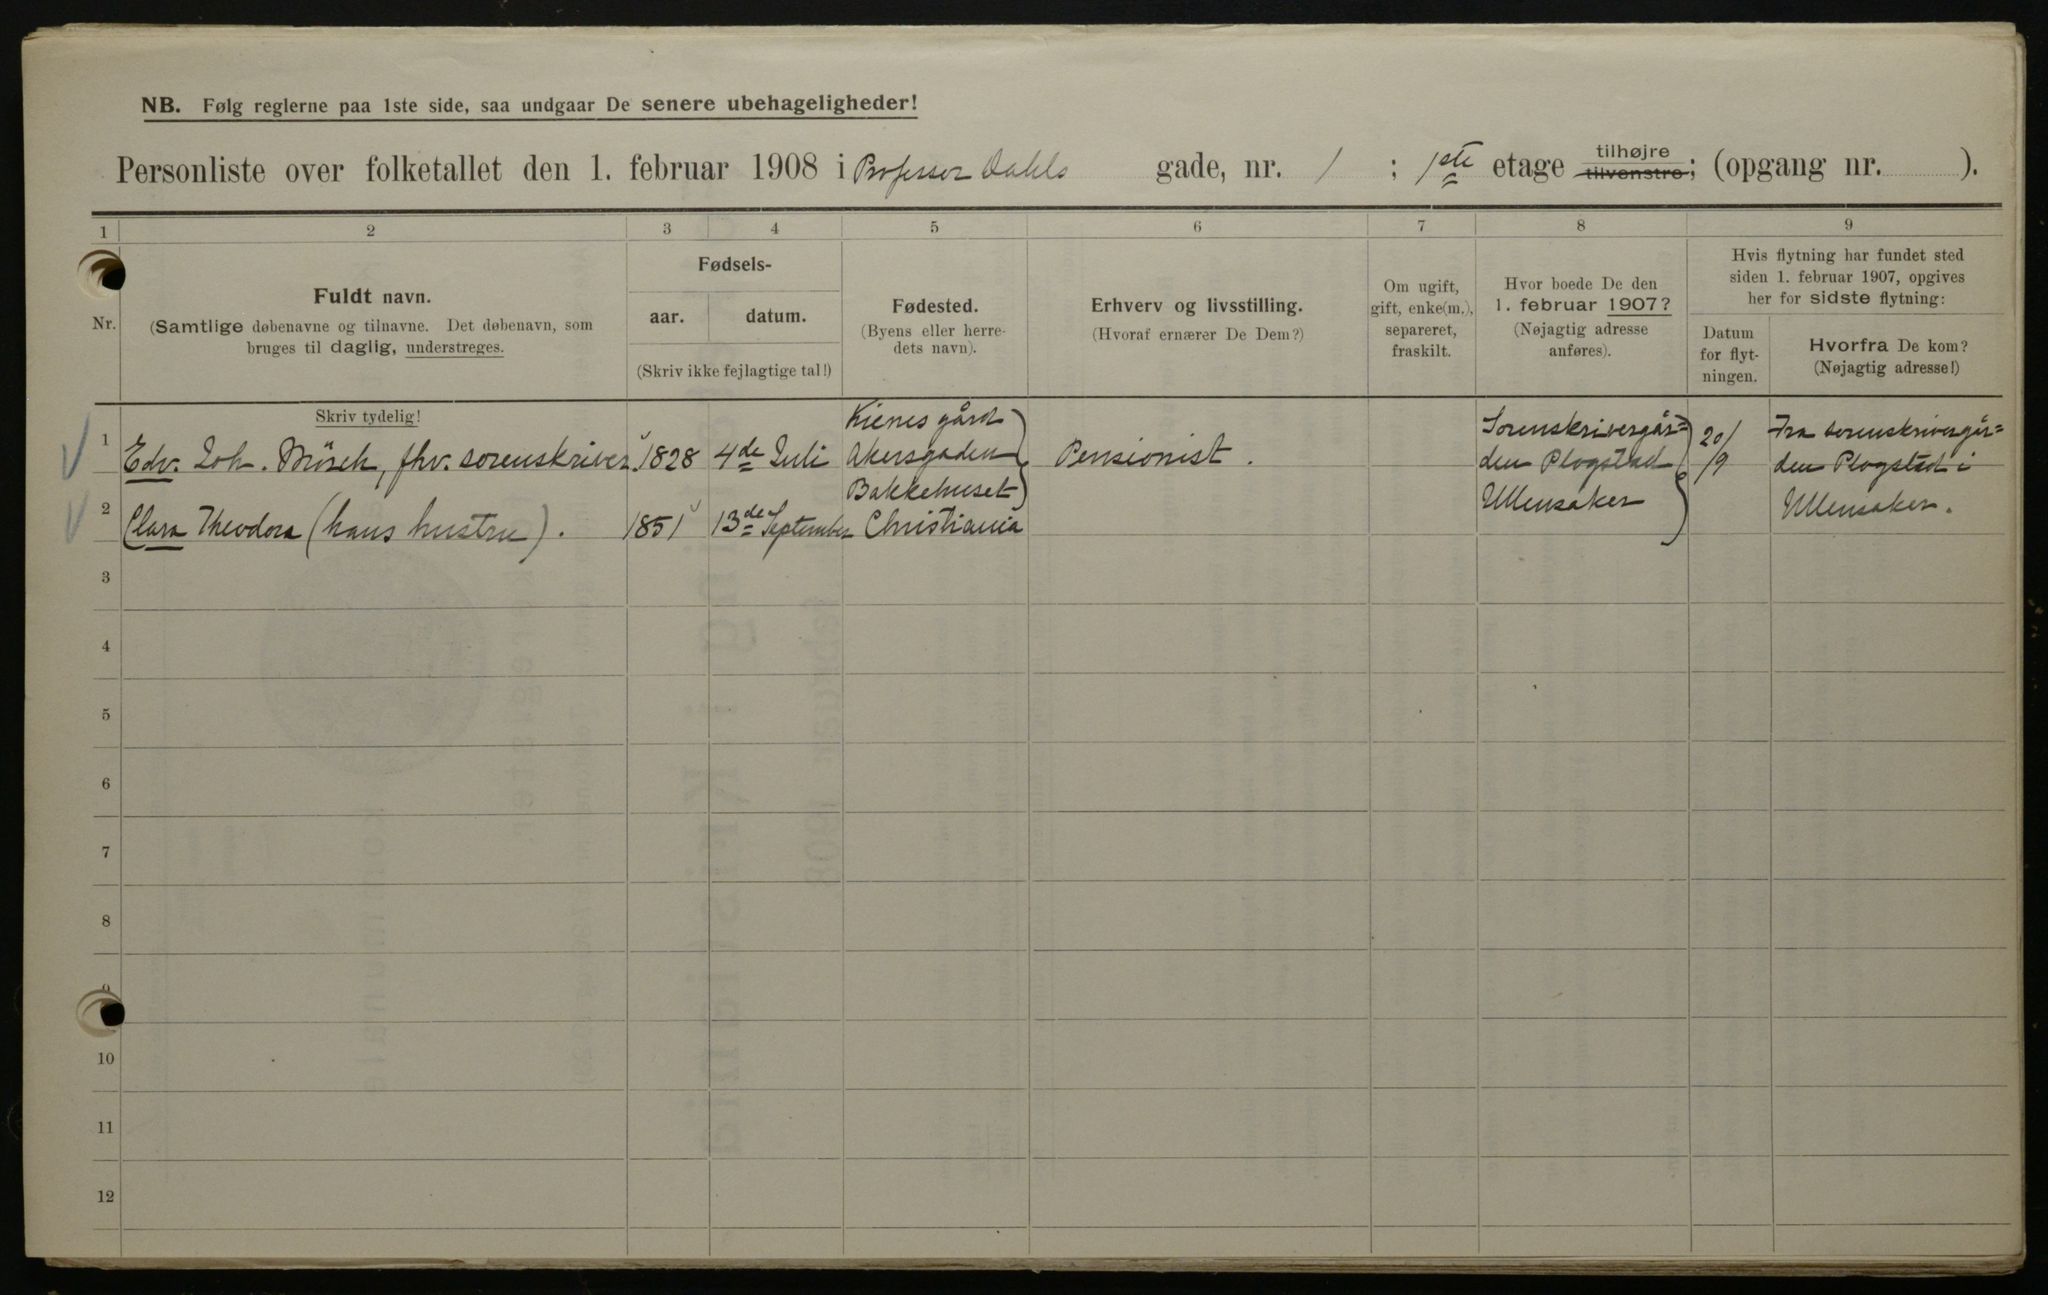 NB. Følg reglerne paa 1ste side, saa undgaar De senere ubehageligheder!
Personliste over folketallet den 1. februar 1908 i Professor Dahls gade, nr. 1 ; 1ste etage tilhøjre tilvenstre; (opgang nr. ).
1 2 3 4 5 6 7 8 9
Nr.
Fuldt navn.
(Samtlige døbenavne og tilnavne. Det døbenavn, som
bruges til daglig, understreges.
Skriv tydelig!
Fødsels-
aar. datum.
(Skriv ikke fejlagtige tal!)
Fødested.
(Byens eller herre-
dets navn).
Erhverv og livsstilling.
(Hvoraf ernærer De Dem?)
Om ugift,
gift, enke(m.),
separeret,
fraskilt.
Hvor boede De den
1. februar 1907?
(Nøjagtig adresse
anføres).
Hvis flytning har fundet sted
siden 1. februar 1907, opgives
her for sidste flytning:
Datum
for flyt-
ningen.
Hvorfra De kom?
(Nøjagtig adresse!)
1 Edv. Joh. Mörch, fhv. sorenskriver. 1828 4de Juli
Kienesgård
Akersgaden
Bakkehuset
Pensionist.
Sorenskrivergår=
den Plogstad
Ullensaker
20/
/9
Fra sorenskrivergår=
den Plogstad i
Ullensaker.
2 Clara Theodora (hans hustru). 1851 13de September Christiania
3
4
5
6
7
8
9
10
11
12